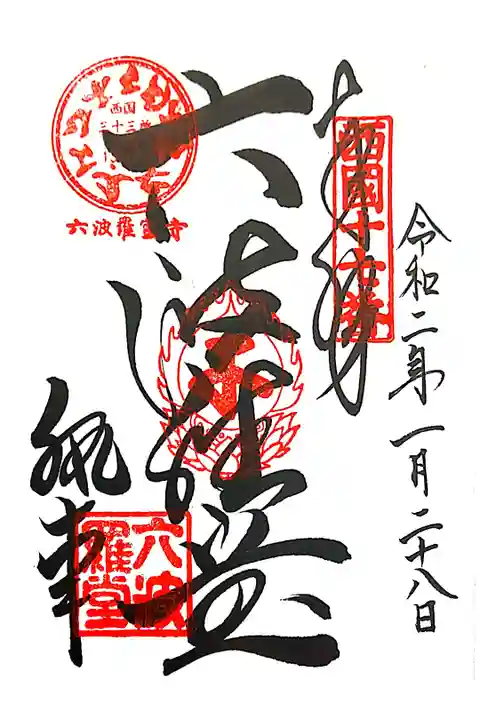 令和二年一月二十八日
奉拝
西國十七番
六波羅堂
西国
三十三所
六波羅蜜寺
六波羅堂
執事